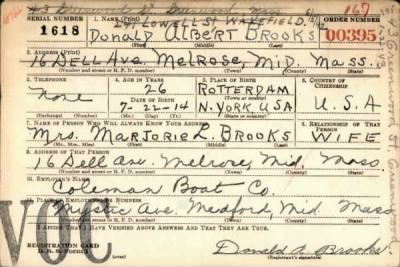 43 Greenwood St. Greenwood, Mass 167
SERIAL NUMBER 1. NAME (Print) ORDER NUMBER
Lowell St WAKEFIELD.
1618 DONALD ALBERT BROOKS 00395
(First) (Middle) (Last)
2. ADDRESS (Print)
16 DELL AVE. MELROSE, MID. MASS.
(Number and street or R. F. D. number) (Town) (County) (State)
3. TELEPHONE 4. AGE IN YEARS 5. PLACE OF BIRTH 6. COUNTRY OF CITIZENSHIP
None 26 ROTTERDAM
DATE OF BIRTH (Town or county)
7-22-14 N. YORK USA U.S.A
(Exchange) (Number) (Mo.) (Day) (Yr.) (State or country)
7. NAME OF PERSON WHO WILL ALWAYS KNOW YOUR ADDRESS 8. RELATIONSHIP OF THAT PERSON
Mrs. MARJORIE L. BROOKS WIFE
(Mr., Mrs., Miss) (First) (Middle) (Last)
9. ADDRESS OF THAT PERSON
16 Dell Ave. Melrose, Mid. Mass
(Number and street or R. F. D. number) (Town) (County) (State)
10. EMPLOYER'S NAME
Coleman Boat Co.
11. PLACE OF EMPLOYMENT OR BUSINESS
Mystic Ave. Medford, Mid. Mass
(Number and street or R. F. D. number) (Town) (County) (State)
I AFFIRM THAT I HAVE VERIFIED ABOVE ANSWERS AND THAT THEY ARE TRUE.
VOC
REGISTRATION CARD
D. S. S. Form 1 Donald A Brooks